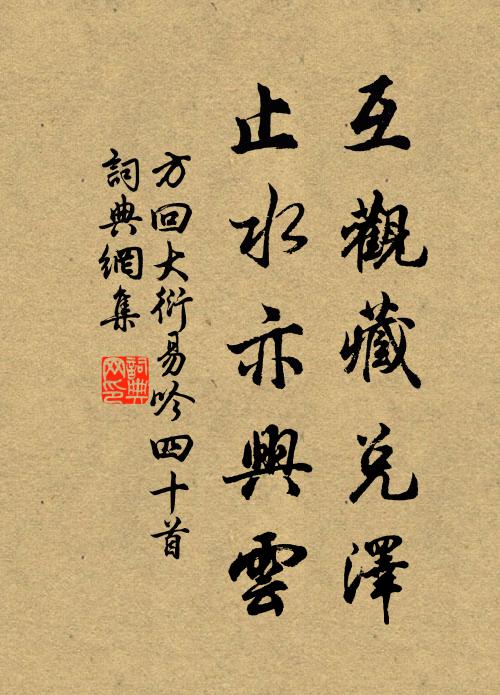 互觀藏兌澤
止水亦興雲
方回大衍易吟四十首
詞典網集
詞典
网印